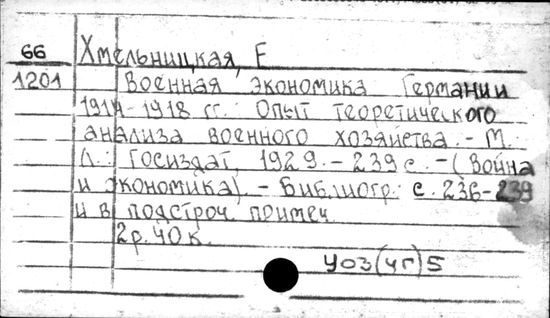 66 Хмельницкая, Е
1201 Военная экономика Германии
1914-1918 гг. Опыт теоретического
анализа военного хозяйства. - М.
Л.: Госиздат, 1929. - 239 с. - (Война
и экономика). - Библиогр: с. 236-239
и в подстроч. примеч
2 р. 40 к.
У03(4Г)5